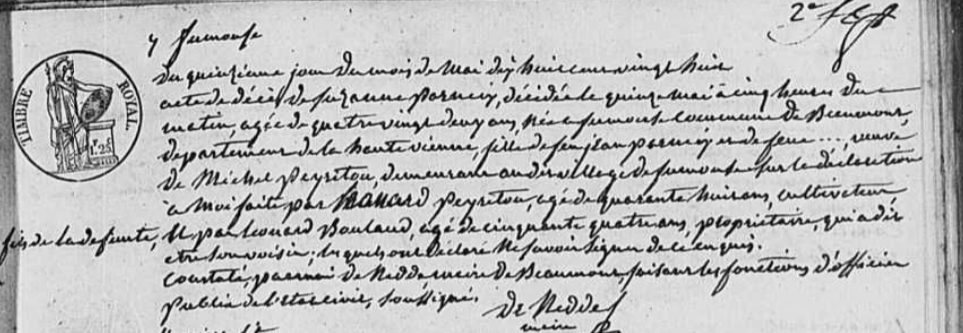 2e f
7 fumouse
TIMBRE ROYAL
1F 25
du quinzieme jour du mois de mai dix huit cent vingt huit
acte de décès de suzanne, décédée le quinze mai à cinq heures du
matin, agée de quatre vingt deux ans, née a fumouse commune de Beaumont,
departement de la haute vienne, fille de feu jean et de feue ..., veuve
de Michel Peyretou, demeurant au dit village de fumouse sur la déclaration
à moi faite par Léonard Peyretou, agé de quarante huit ans, cultivateur
fils de la defunte, et par Léonard Boulaud, agé de cinquante quatre ans, propriétaire, qui a dit
etre son voisin; lesquels ont déclaré ne savoir signer de ce enquis.
Constaté, par moi de Nedde maire de Beaumont faisant les fonctions d'officier
public de l'etat civil, soussigné.
de Nedde
maire